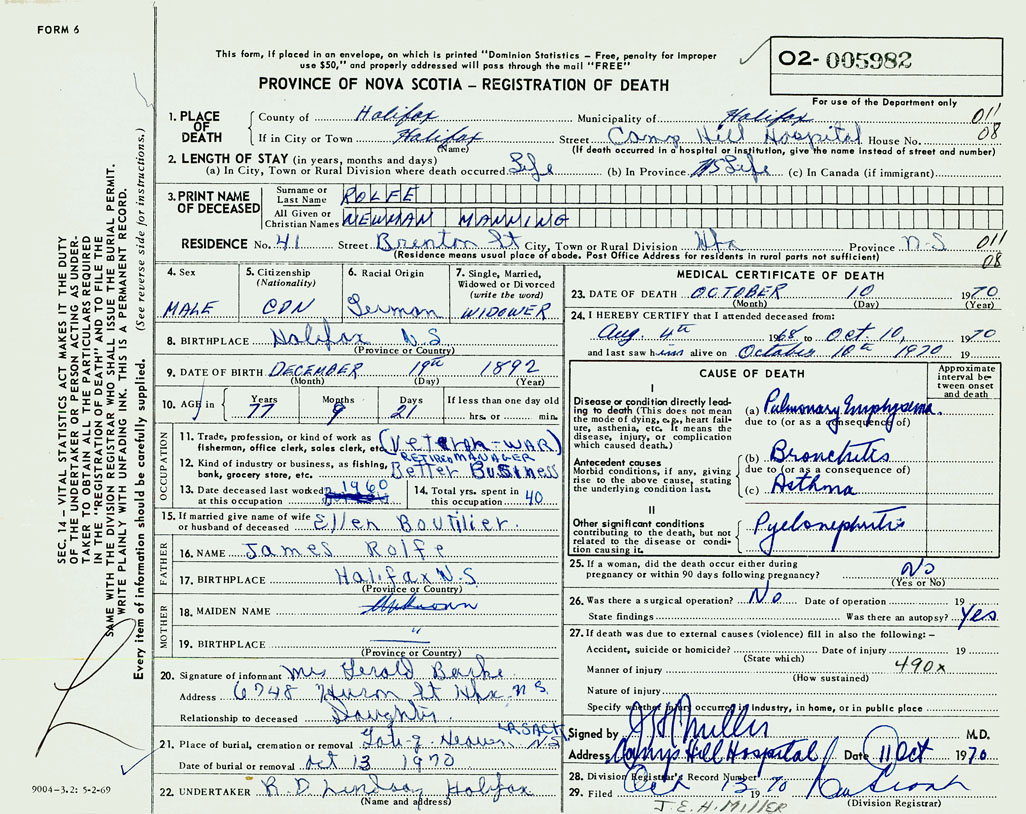 FORM 6
This form, if placed in an envelope, on which is printed "Dominion Statistics – Free, penalty for improper
use $50," and properly addressed will pass through the mail "FREE"
PROVINCE OF NOVA SCOTIA – REGISTRATION OF DEATH
O2- 005982
For use of the Department only
SEC. 14 – VITAL STATISTICS ACT MAKES IT THE DUTY
OF THE UNDERTAKER OR PERSON ACTING AS UNDER-
TAKER TO OBTAIN ALL THE PARTICULARS REQUIRED
IN THE "REGISTRATION OF DEATH" AND TO FILE THE
SAME WITH THE DIVISION REGISTRAR WHO SHALL ISSUE THE BURIAL PERMIT.
WRITE PLAINLY WITH UNFADING INK. THIS IS A PERMANENT RECORD.
Every item of information should be carefully supplied. (See reverse side for instructions.)
1. PLACE OF DEATH County of Halifax Municipality of Halifax 011
If in City or Town Halifax Street Camp Hill Hospital House No. 08
(Name) (If death occurred in a hospital or institution, give the name instead of street and number)
2. LENGTH OF STAY (in years, months and days)
(a) In City, Town or Rural Division where death occurred Life (b) In Province Life (c) In Canada (if immigrant)
3. PRINT NAME OF DECEASED Surname or Last Name ROLFE
All Given or Christian Names NEWMAN MANNING
RESIDENCE No. 41 Street Brenton St City, Town or Rural Division Hfx Province N-S 011
(Residence means usual place of abode. Post Office Address for residents in rural parts not sufficient) 08
4. Sex 5. Citizenship (Nationality) 6. Racial Origin 7. Single, Married, Widowed or Divorced (write the word)
MALE CDN German WIDOWER
8. BIRTHPLACE Halifax N.S
(Province or Country)
9. DATE OF BIRTH DECEMBER 19th 1892
(Month) (Day) (Year)
10. AGE in Years Months Days If less than one day old
77 9 21 hrs. or min.
OCCUPATION
11. Trade, profession, or kind of work as fisherman, office clerk, sales clerk, etc. (Veteran-WAR)
RETIRED MANAGER
12. Kind of industry or business, as fishing, bank, grocery store, etc. Better Business
13. Date deceased last worked at this occupation 1960
14. Total yrs. spent in this occupation 40
15. If married give name of wife or husband of deceased Ellen Boutilier.
FATHER
16. NAME James Rolfe
17. BIRTHPLACE Halifax N.S
(Province or Country)
MOTHER
18. MAIDEN NAME Unknown
19. BIRTHPLACE "
(Province or Country)
20. Signature of informant Mrs Gerald
Address 6748 Huron St Hfx N S.
Relationship to deceased Daughter.
21. Place of burial, cremation or removal N.S
Date of burial or removal Oct 13 1970
22. UNDERTAKER R. D. Lindsay Halifax
(Name and address)
9004-3.2: 5-2-69
MEDICAL CERTIFICATE OF DEATH
23. DATE OF DEATH OCTOBER 10 1970
(Month) (Day) (Year)
24. I HEREBY CERTIFY that I attended deceased from:
Aug. 4th 1968 to Oct. 10, 1970
and last saw him alive on October 10th 1970 19
CAUSE OF DEATH
Approximate interval between onset and death
I
Disease or condition directly leading to death (This does not mean the mode of dying, e.g., heart failure, asthenia, etc. It means the disease, injury, or complication which caused death.)
(a) Pulmonary Emphysema
due to (or as a consequence of)
Antecedent causes
Morbid conditions, if any, giving rise to the above cause, stating the underlying condition last.
(b) Bronchitis
due to (or as a consequence of)
(c) Asthma
II
Other significant conditions contributing to the death, but not related to the disease or condition causing it.
Pyelonephritis
25. If a woman, did the death occur either during pregnancy or within 90 days following pregnancy? No
(Yes or No)
26. Was there a surgical operation? No Date of operation 19
State findings Was there an autopsy? Yes
27. If death was due to external causes (violence) fill in also the following: –
Accident, suicide or homicide? Date of injury 19
(State which)
Manner of injury 490x
(How sustained)
Nature of injury
Specify whether injury occurred in industry, in home, or in public place
Signed by J H Miller M.D.
Address Camp Hill Hospital Date 11 Oct 1970
28. Division Registrar's Record Number
29. Filed Oct 13 1970
(Division Registrar)
J. E. H. MILLER